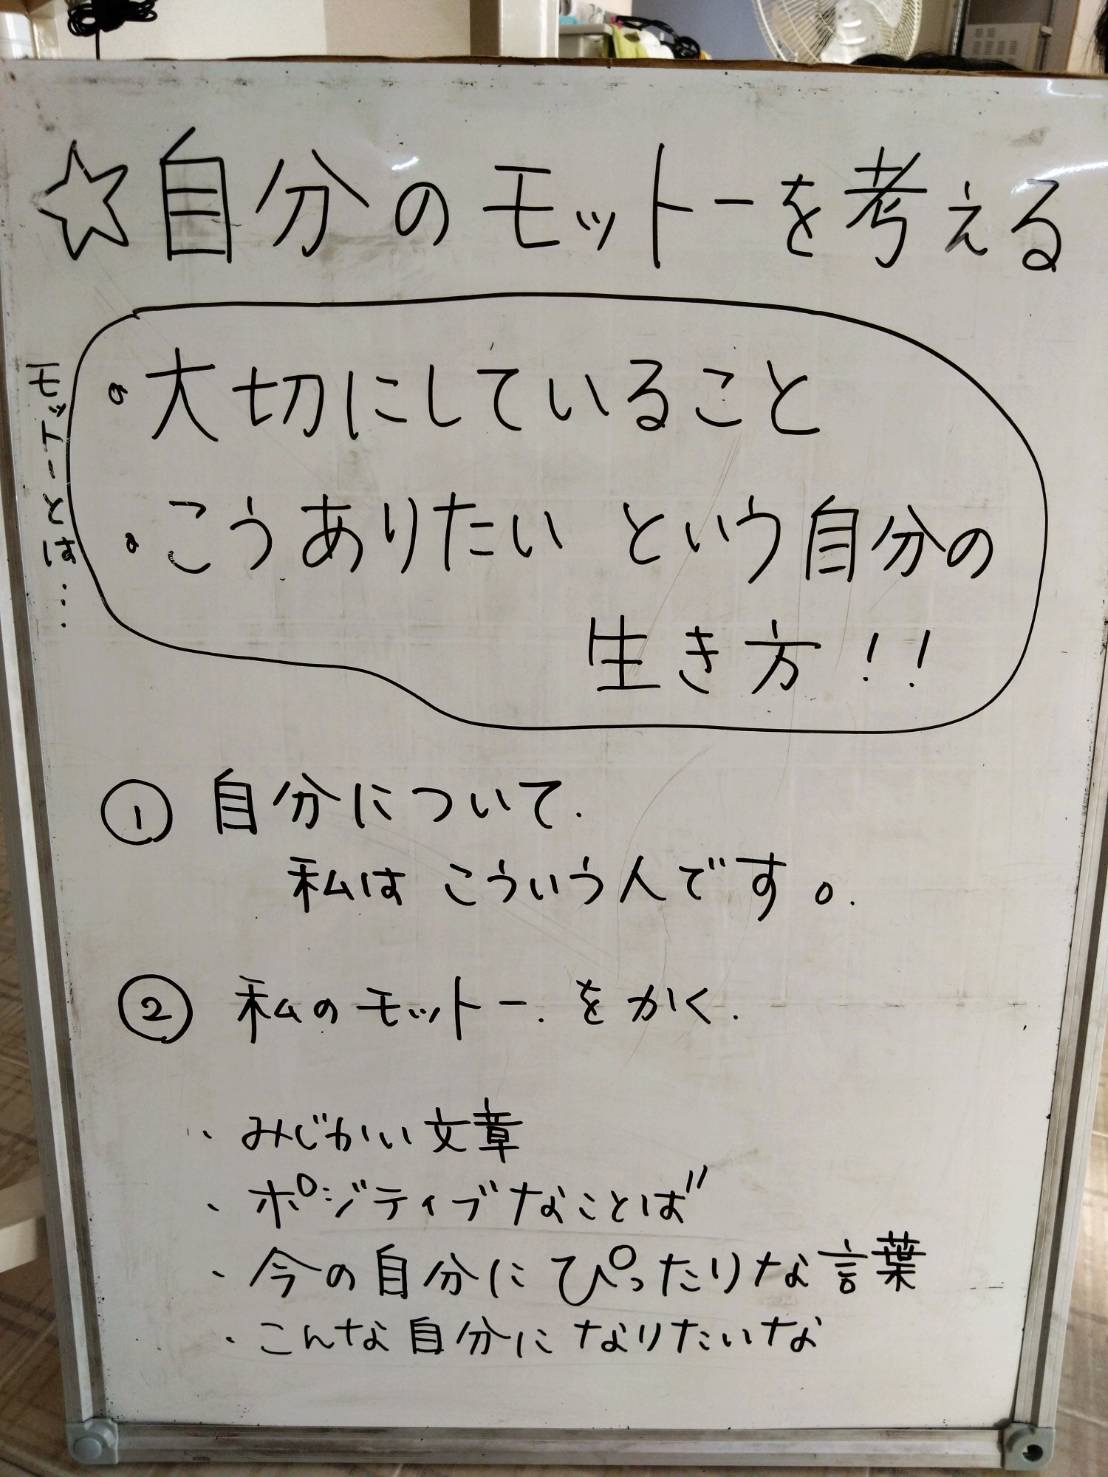 ☆自分のモットーを考える
モットーとは...
・大切にしていること
・こうありたい という自分の
生き方!!
① 自分について.
私は こういう人です。.
② 私のモットー. をかく.
・みじかい文章
・ポジティブなことば"
・今の自分にぴったりな言葉
・こんな自分になりたいな